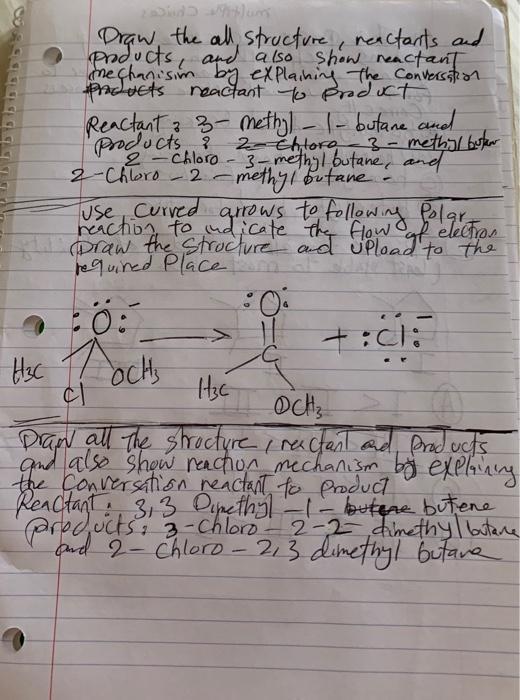 Draw the all structure, reactants and
products, and also show reactant
mechanisim by explaining the conversation
products reactant to product
Reactant : 3-methyl-1-butane and
products : 2-chloro-3-methyl butan
2-chloro-3-methyl butane, and
2-chloro-2-methyl butane.
Use curved arrows to following polar
reaction to indicate the flow of electron
Draw the structure and upload to the
required place
:Ö:⁻ → :O: + :Cl:⁻
C
H3C OCH3
Cl
H3C
OCH3
Draw all the structure, reactant and products
and also show reaction mechanism by explaining
the conversation reactant to product
Reactant: 3,3 Dimethyl-1-butene butene
products: 3-chloro-2-2-dimethyl butane
and 2-chloro-2,3 dimethyl butane